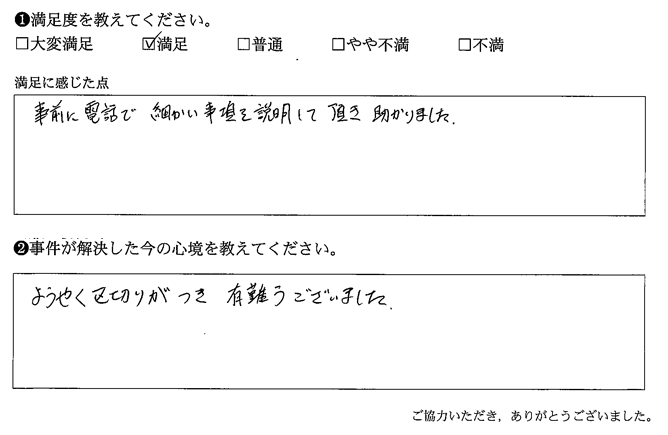 ❶満足度を教えてください。
□大変満足 ☑満足 □普通 □やや不満 □不満
満足に感じた点
事前に電話で 細かい事項を説明して 頂き 助かりました.
❷事件が解決した今の心境を教えてください。
ようやく区切りが つき 有難うございました.
ご協力いただき，ありがとうございました。